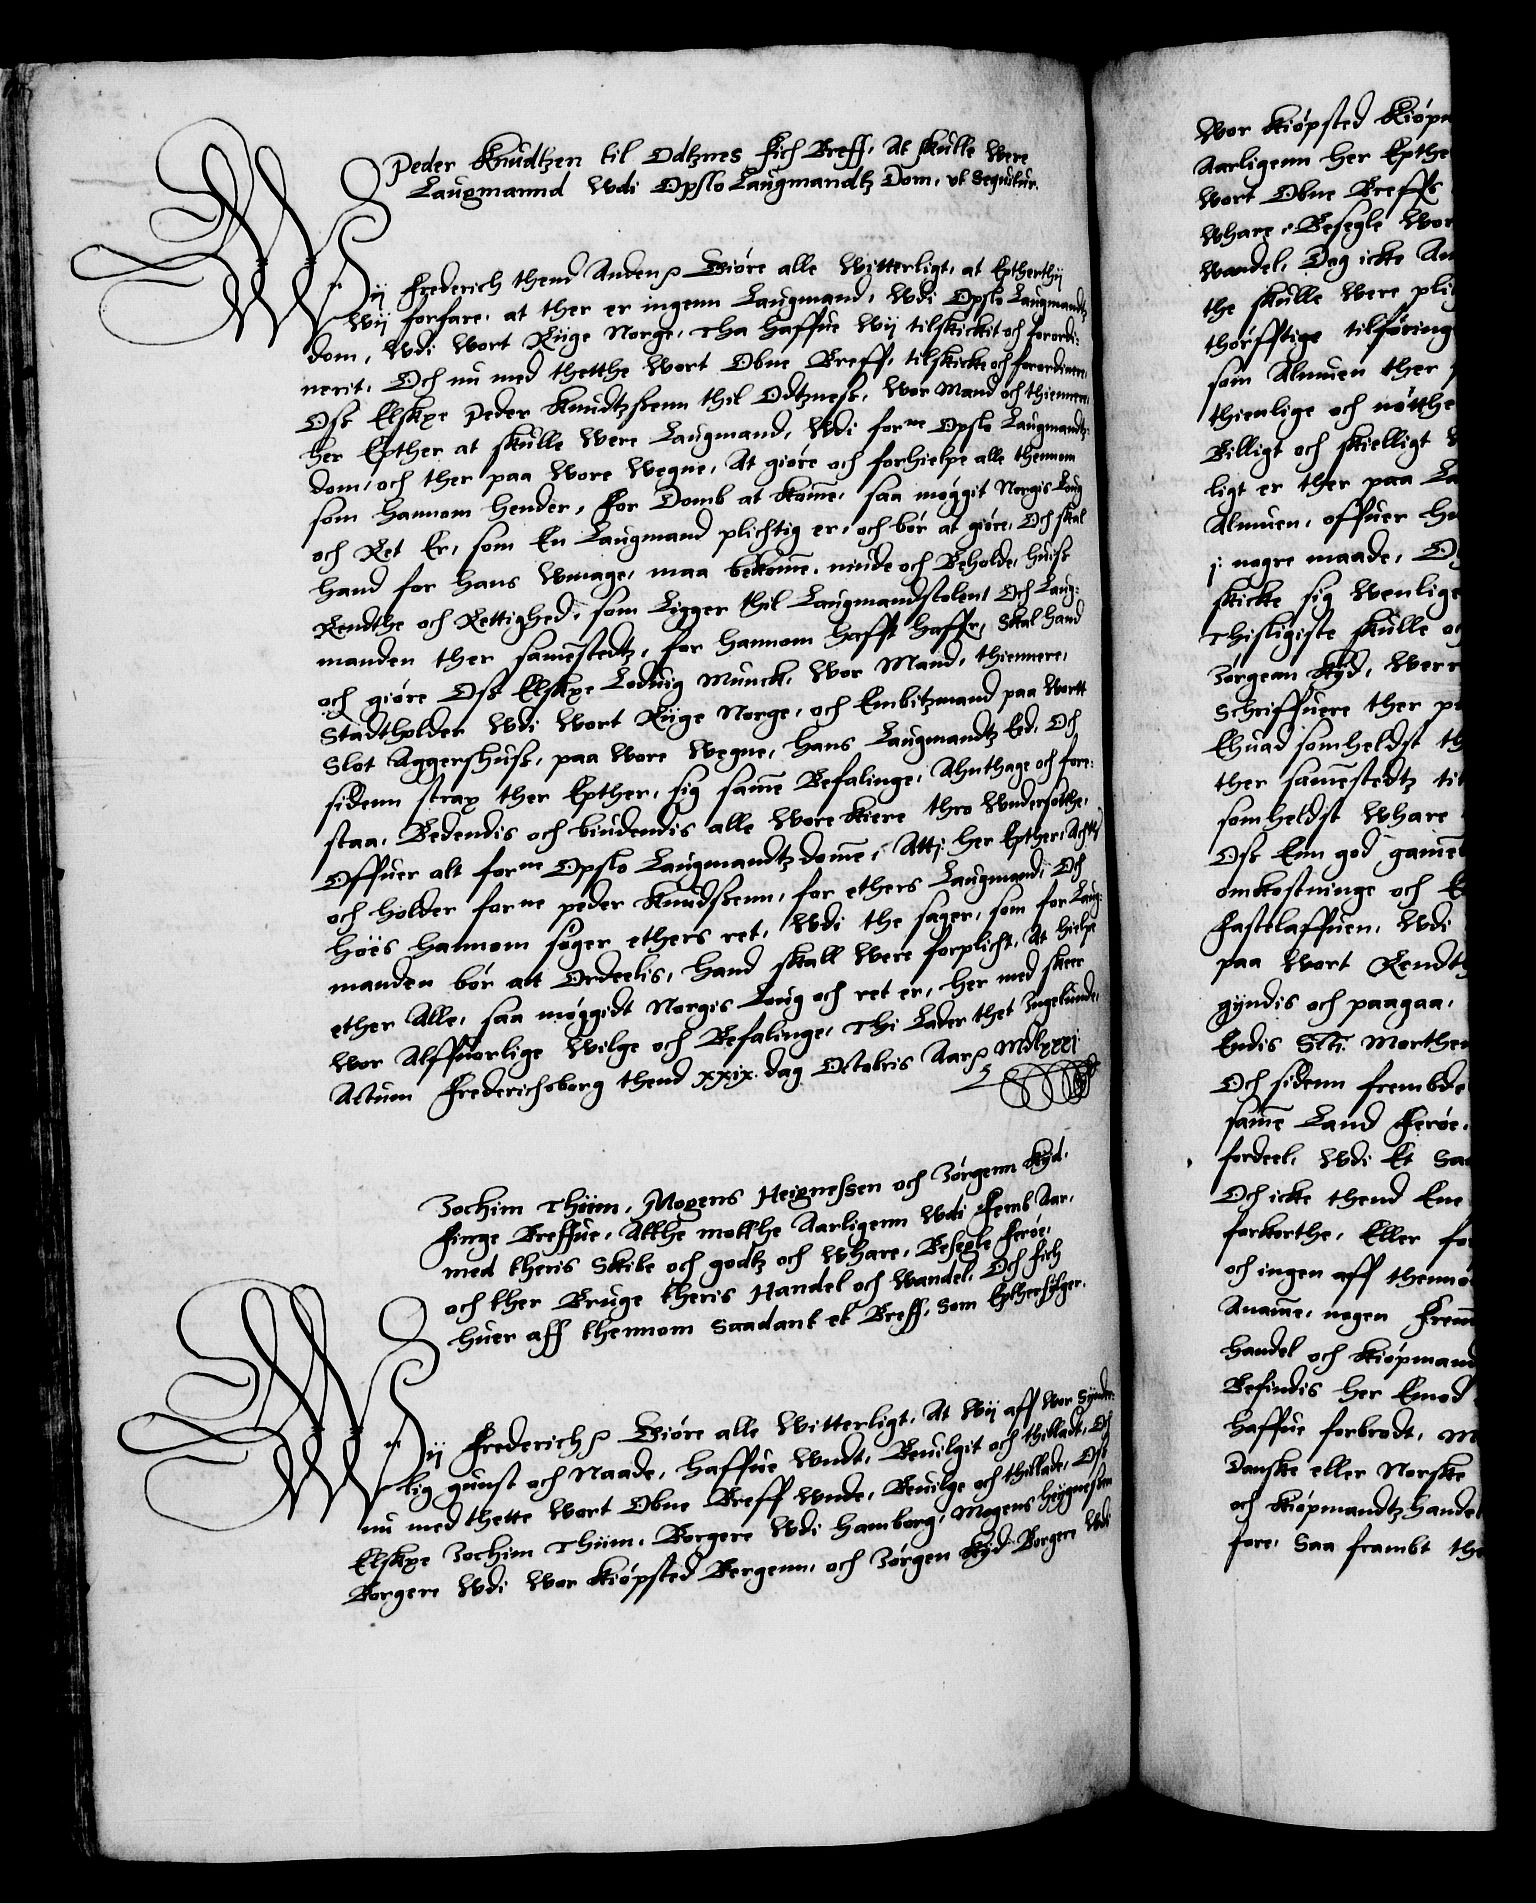 Peder Knudtzen til Odtznes fich Breff, At skulle were
Laugmannd wdi Opslo Laugmandtz Dom, vt sequitur.
Wij Frederich thend Anden Giøre alle witterligt, at Eptherthij
wij forfare, at ther er ingenn Laugmand, wdi Opslo Laugmandtz
dom, wdi wort Riige Norge, tha haffue wij tilskickit och forordi:
nerit, Och nu med thetthe wort Obne Breff, tilskicke och forordinere,
Oss Elskxe Peder Knudtzssenn thil Odtzness, wor Mand och thiennere,
her Epther at skulle were Laugmand, wdi forne Opslo Laugmandtz
dom, och ther paa wore wegne, At giøre och forhielpe alle thennom
som hannom hender, for Domb at komme, saa møggit Norgis Loug
och Ret Er, som En Laugmand plichtig er, och bør at giøre, Och skal
hand for hans wmage, maa bekomme, niude och Beholde, huiss
Rendthe och Rettighed, som Ligger thil Laugmandstolent Och Laug:
manden ther samestedtz, for hannom hafft haffr, Skal hand
och giøre Oss Elskxe Loduig Munck, wor Mand, thiennere,
Stadtholder wdi wort Riige Norge, och Embitzmand paa wortt
Slot Aggershuss, paa wore wegne, hans Laugmandtz Ed, Och
sidenn strax ther Epther, sig same Befalinge, Ahnthage och fore:
staa, Bedendis och biudendis alle wore kiere thro wndersotthe,
Offuer alt forne Opslo Laugmandtz dome, Atti her Epther, Achtte
och holder forne peder Knudssenn, for ethers Laugmand, Och
høes hannom søger ethers ret, wdi the sager, som for Laug:
manden bør att Ordeelis, hand skall were forplicht, At hielpe
ether Alle, saa møggidt Norgis Loug och ret er, her med skeer
wor Alffuorlige wilge och Befalinge, Thi Lader thet Ingelunde,
Actum Frederichsborg thend xxix. dag Octobris Aar Mdlxxxj
Jochim Thiim, Mogens Heignessen och Jørgenn Kyd.
Finge Breffue, Atthe motthe Aarligenn wdi Femb Aar,
med theris Skibe och godtz och whare, Besegle Ferøe,
och ther Bruge theris Handel och wandel, Och fich
huer aff thennom Saadant et Breff, som Eptherfølger.
Wij Frederich Giøre alle witterligt, At wij aff wor Synder:
lig gunst och Naade, haffue wndt, Beuilgit och thilladt, Och
nu med thette wort Obne Breff wnde, Beuilge och thillade, Oss
Elskxe Jochim Thiim, Borgere wdi Hamborg, Mogens Heignessen
Borgere wdi wor kiøpsted Bergenn, och Jørgen Kyd Borgere wdi
wor kiøpsted
Aarligenn her Epthe
wort Obne Breffs
whare, Besegle wor
wandel, Dog icke
the skulle were
thørfftige tilføring
som Almuen ther
thienlige och nøtthe
Billigt och skielligt
ligt er ther paa
Almuen, offuer
j nogre maade,
skicke sig wenlige
Thisligiste skulle
Jørgenn Kyd, werre
Schriffuere ther
Ehuad somheldst
ther samestedtz
somheldst whare
Oss Enn god gamel
omkostninge och
Fastelaffuen, wdi
paa wort Rendth
gyndis och paagaa,
Endis Scti Morthen
Och sidenn frembde
same Land Ferøe,
fordeel, wdi Et
Och icke thend Ene
forkorthe, Eller
och ingen aff thennom
Aname, nogen
handel och kiøpmand
Befindis her Emod
haffue forbrødt,
Danske eller Norske
och kiøpmandtz handel
fore, Saa frambt